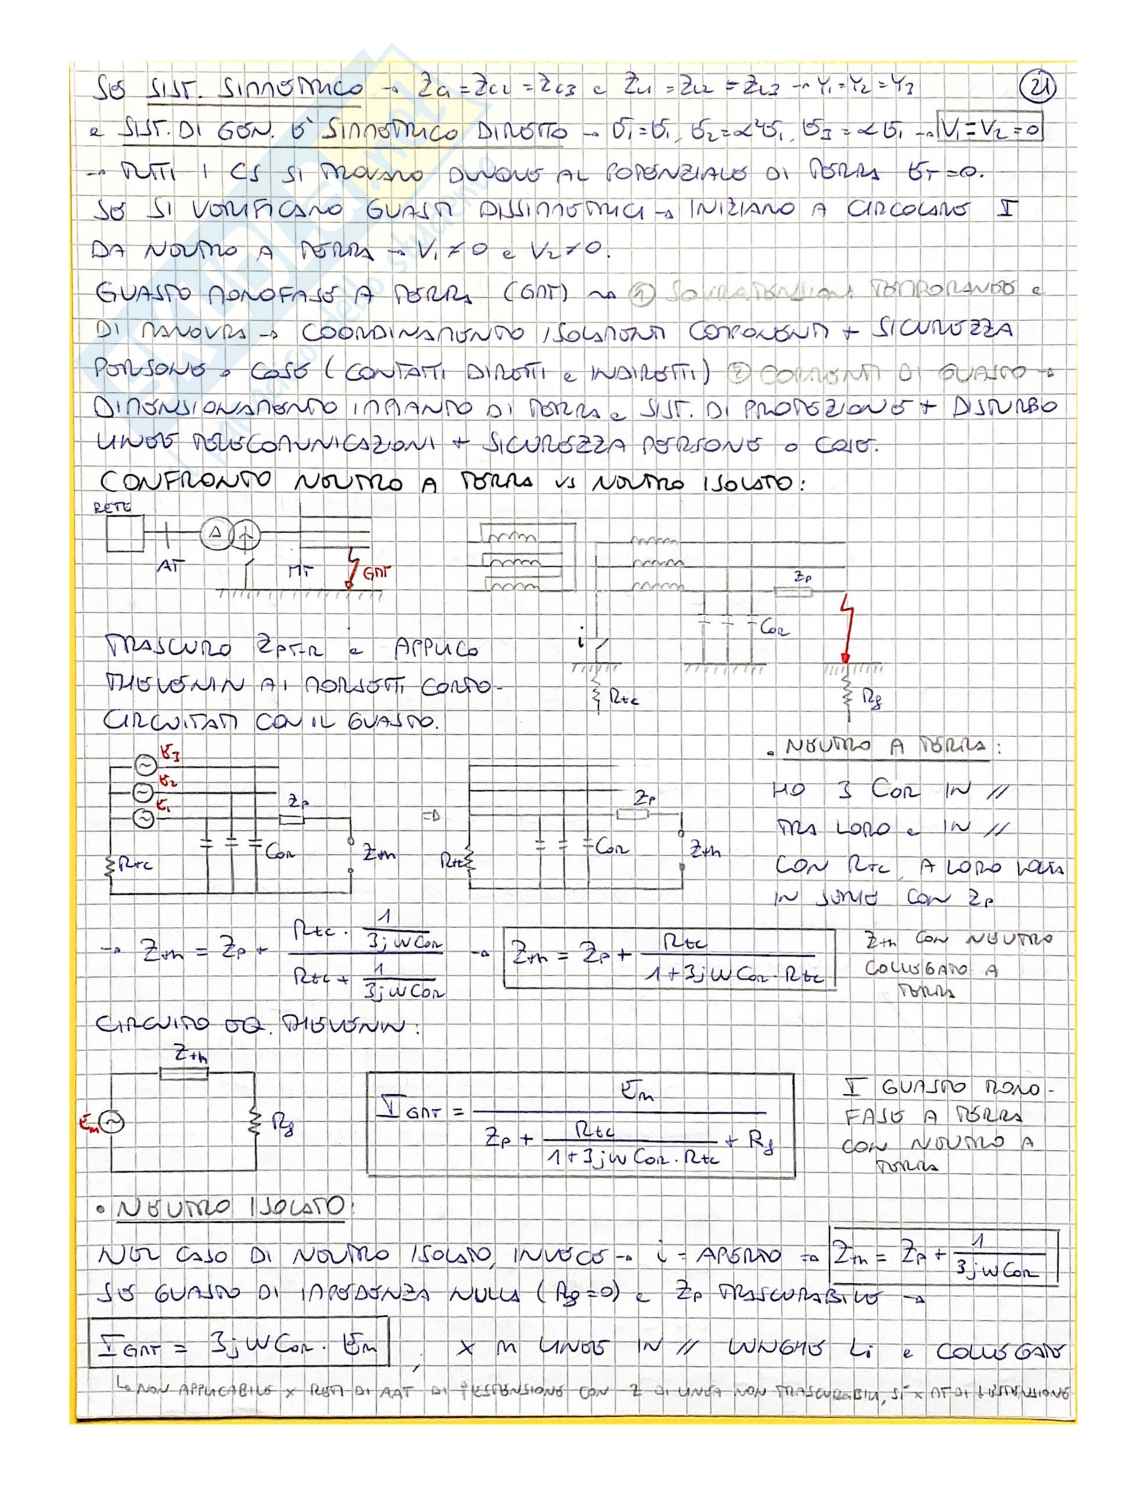 SE SIST. SIMMETRICO → ZC1 = ZC2 = ZC3 e ZL1 = ZL2 = ZL3 → Y1 = Y2 = Y3
21
e SIST. DI GEN. È SIMMETRICO DIRETTO → E1 = E1, E2 = α²E1, E3 = αE1 → V1 = V2 = 0
→ TUTTI I CS SI TROVANO DUNQUE AL POTENZIALE DI TERRA ET = 0.
SE SI VERIFICANO GUASTI DISSIMMETRICI → INIZIANO A CIRCOLARE I
DA NEUTRO A TERRA → V1 ≠ 0 e V2 ≠ 0.
GUASTO MONOFASE A TERRA (GMT) ⇝ ① SOVRATENSIONI TEMPORANEE e
DI MANOVRA → COORDINAMENTO ISOLAMENTI COMPONENTI + SICUREZZA
PERSONE o COSE (CONTATTI DIRETTI e INDIRETTI) ② CORRENTI DI GUASTO →
DIMENSIONAMENTO IMPIANTO DI TERRA e SIST. DI PROTEZIONE + DISTURBO
LINEE TELECOMUNICAZIONI + SICUREZZA PERSONE o COSE.
CONFRONTO NEUTRO A TERRA VS NEUTRO ISOLATO:
RETE
AT
Δ
MT
GMT
ZP
COR
i
Rtc
Rg
TRASCURO ZPTR e APPLICO
THEVENIN AI MORSETTI CORTO-
CIRCUITATI CON IL GUASTO.
• NEUTRO A TERRA:
HO 3 COR IN //
TRA LORO e IN //
CON Rtc, A LORO VOLTA
IN SERIE CON ZP
E3
E2
E1
ZP
COR
Rtc
Zth
⇒
Rtc
COR
ZP
Zth
→ Zth = ZP + (Rtc · 1/3jωCOR) / (Rtc + 1/3jωCOR) → Zth = ZP + Rtc / (1+3jωCOR·Rtc)
Zth CON NEUTRO
COLLEGATO A
TERRA
CIRCUITO EQ. THEVENIN:
Zth
Em
Rg
IGMT = Em / (ZP + Rtc / (1+3jωCOR·Rtc) + Rg)
I GUASTO MONO-
FASE A TERRA
CON NEUTRO A
TERRA
• NEUTRO ISOLATO:
NEL CASO DI NEUTRO ISOLATO, INVECE → i = APERTO → Zth = ZP + 1/3jωCOR
SE GUASTO DI IMPEDENZA NULLA (Rg=0) e ZP TRASCURABILE →
IGMT = 3jωCOR · Em, x m LINEE IN // LUNGHE Li e COLLEGATE
↳ NON APPLICABILE x RETI DI AAT DI ESTENSIONE CON Z DI LINEA NON TRASCURABILI, SÌ x MT DI ESTENSIONE